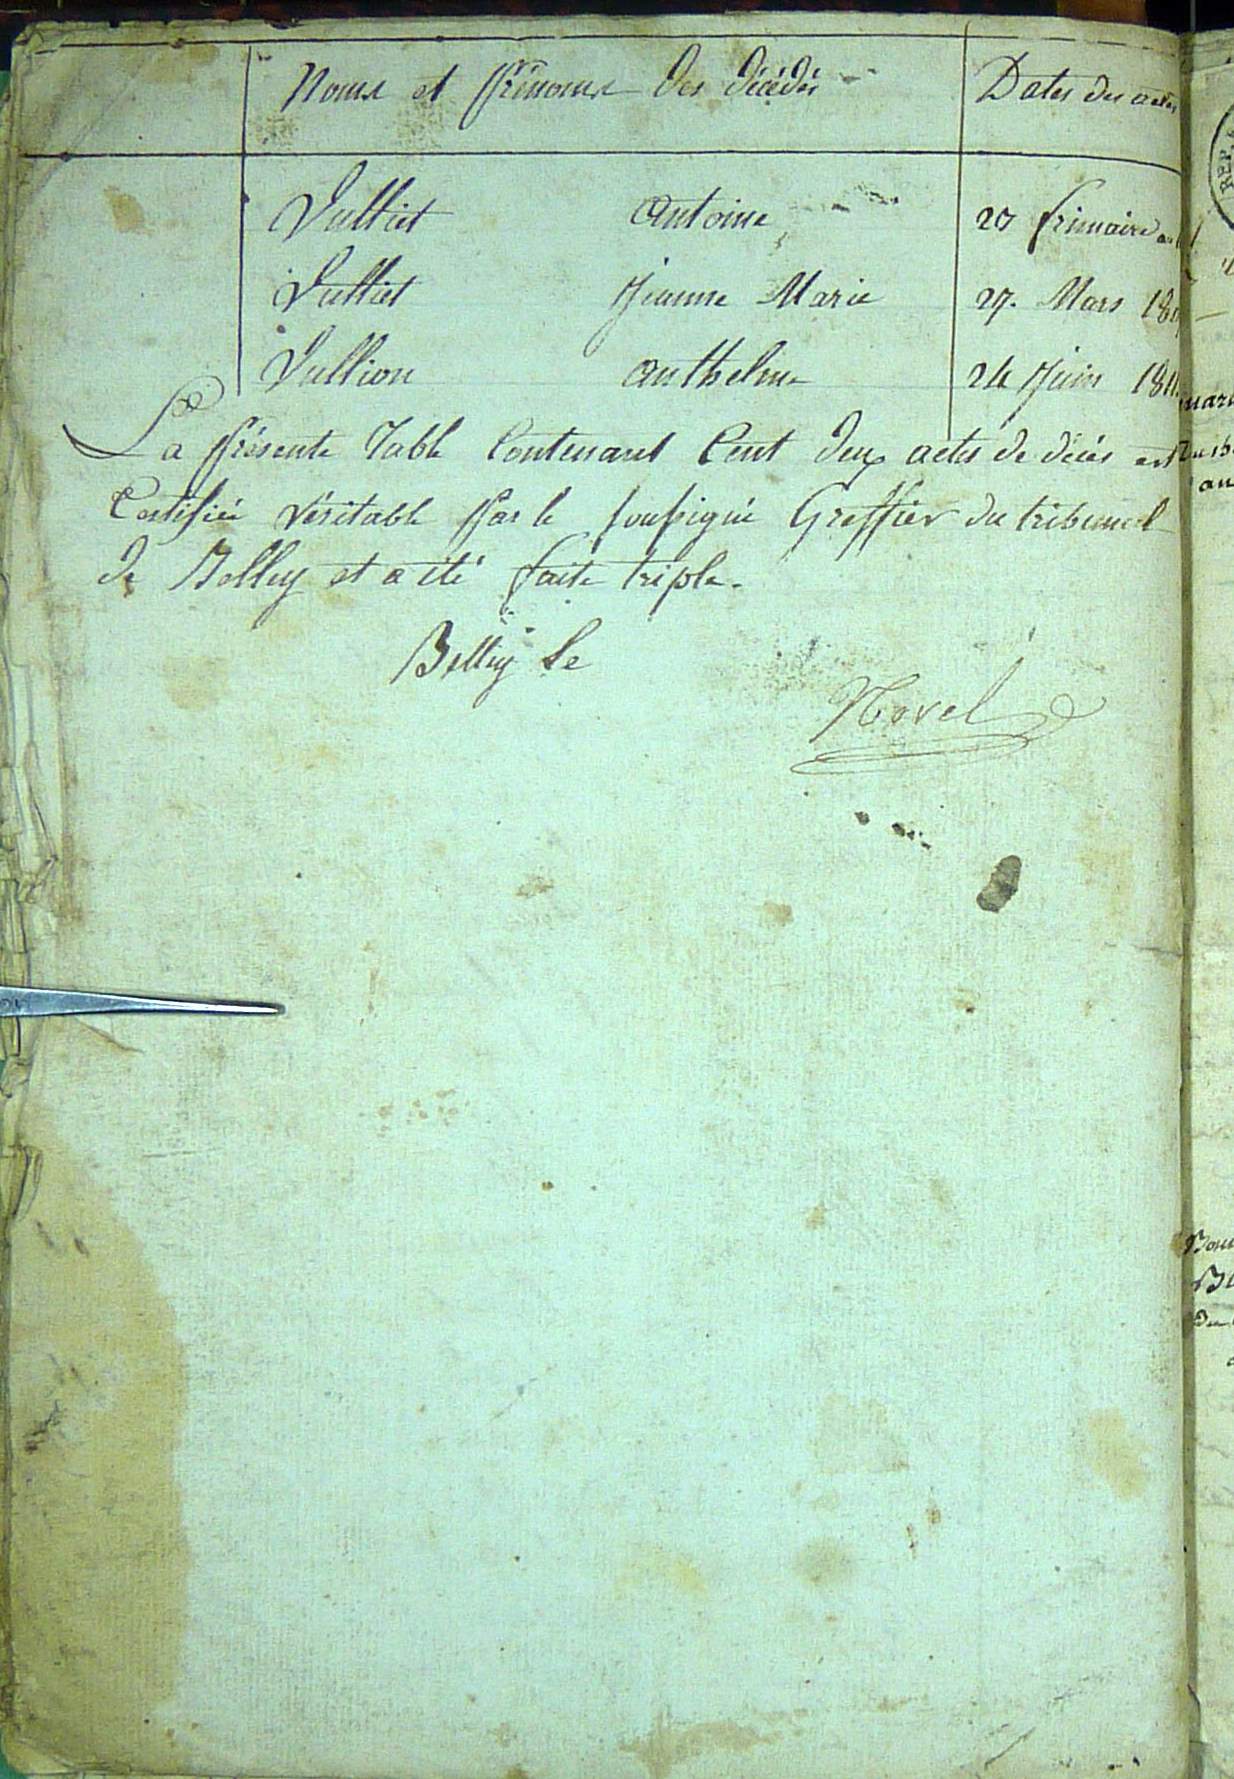 Noms et Prénoms des décédés Dates des actes
Vulliet antoine 20 frimaire an
Vulliet Jeanne Marie 27. Mars 180
Vullion anthelme 24 Juin 181
La Présente Table Contenant Cent deux actes de décés est
Certifiée véritable Par le soussigné Greffier du tribunal
de Belley et a été faite triple.
Belley le
Novel